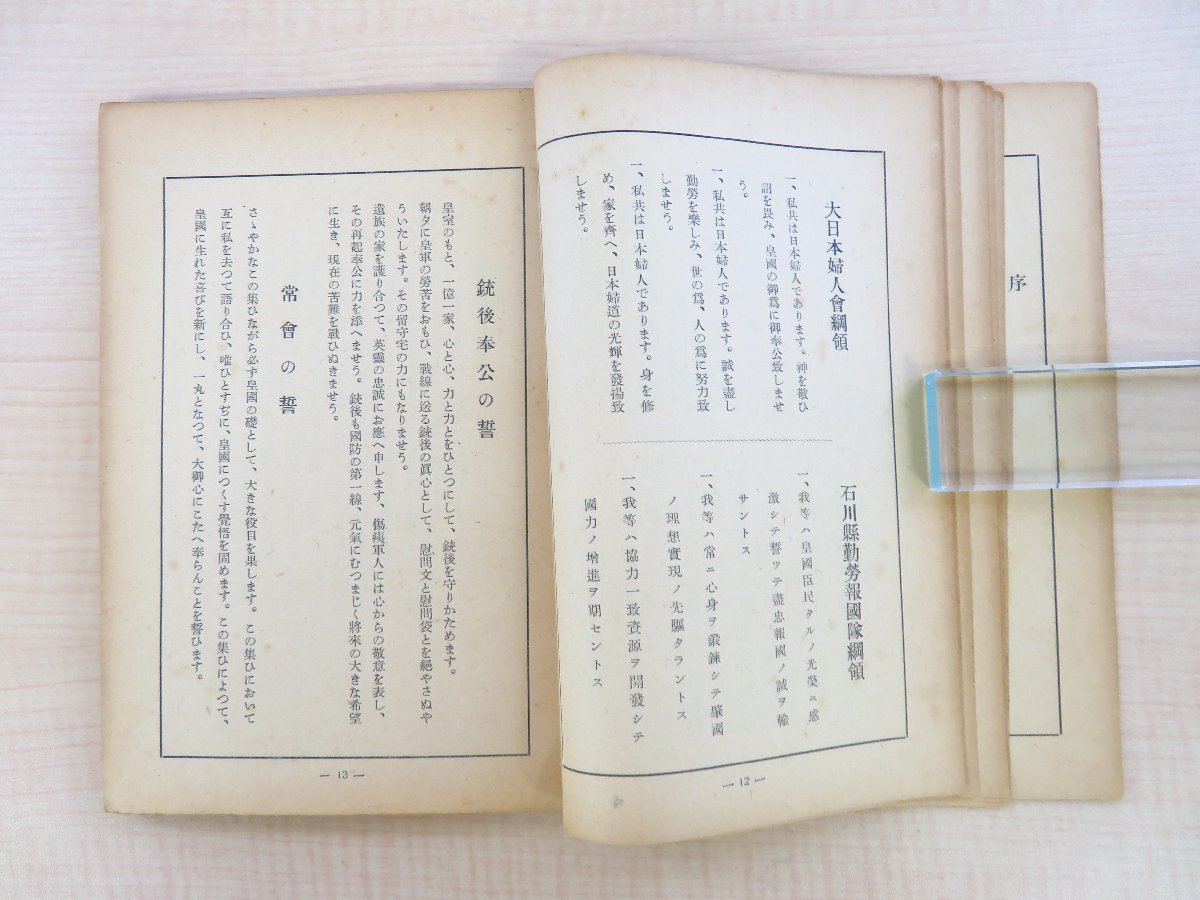 序
大日本婦人會綱領
一、私共は日本婦人であります。神を敬ひ
詔を畏み、皇國の御爲に御奉公致しませ
う。
一、私共は日本婦人であります。誠を盡し
勤勞を樂しみ、世の爲、人の爲に努力致
しませう。
一、私共は日本婦人であります。身を修
め、家を齊へ、日本婦道の光輝を發揚致
しませう。
石川縣勤勞報國隊綱領
一、我等ハ皇國臣民タルノ光榮ニ感
激シテ誓ツテ盡忠報國ノ誠ヲ輸
サントス
一、我等ハ常ニ心身ヲ鍛鍊シテ肇國
ノ理想實現ノ先驅タラントス
一、我等ハ協力一致資源ヲ開發シテ
國力ノ增進ヲ期セントス
— 12 —
銃後奉公の誓
皇室のもと、一億一家、心と心、力と力とをひとつにして、銃後を守りかためます。
朝夕に皇軍の勞苦をおもひ、戰線に送る銃後の眞心として、慰問文と慰問袋とを絕やさぬや
ういたします。その留守宅の力にもなりませう。
遺族の家を護り合つて、英靈の忠誠にお應へ申します、傷痍軍人には心からの敬意を表し、
その再起奉公に力を添へませう。銃後も國防の第一線、元氣にむつまじく將來の大きな希望
に生き、現在の苦難を戰ひぬきませう。
常會の誓
さゝやかなこの集ひながら必ず皇國の礎として、大きな役目を果します。この集ひにおいて
互に私を去つて語り合ひ、唯ひとすぢに、皇國につくす覺悟を固めます。この集ひによつて、
皇國に生れた喜びを新にし、一丸となつて、大御心にこたへ奉らんことを誓ひます。
— 13 —